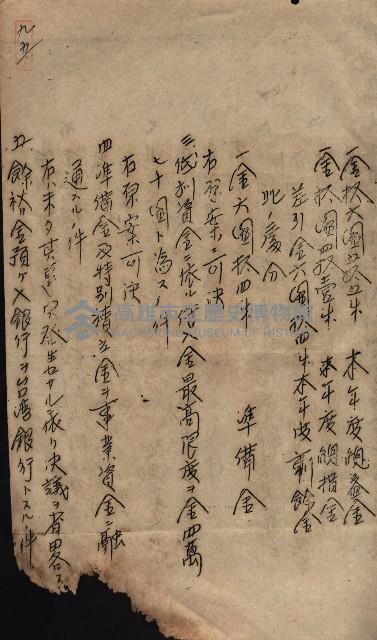 一金拾六圓五拾五銭 本年度總益金
一金拾圓四拾壹銭 本年度總損金
差引金六圓拾四銭本年度剰餘金
此ノ處分
一金六圓拾四銭 準備金
右原案ニ可決
三、低利資金ニ依ル借入金最高限度ヲ金四萬
七十圓ト為スノ件
右原案ニ可決
四、準備金及特別積立金ヲ事業資金ニ融
通スル件
右ハ未タ其事實發生セサルニ依リ決議ヲ省略ス
五、餘裕金預ケ入銀行ヲ台湾銀行トスル件
九五
高雄市立歷史博物館
KAOHSIUNG MUSEUM OF HISTORY